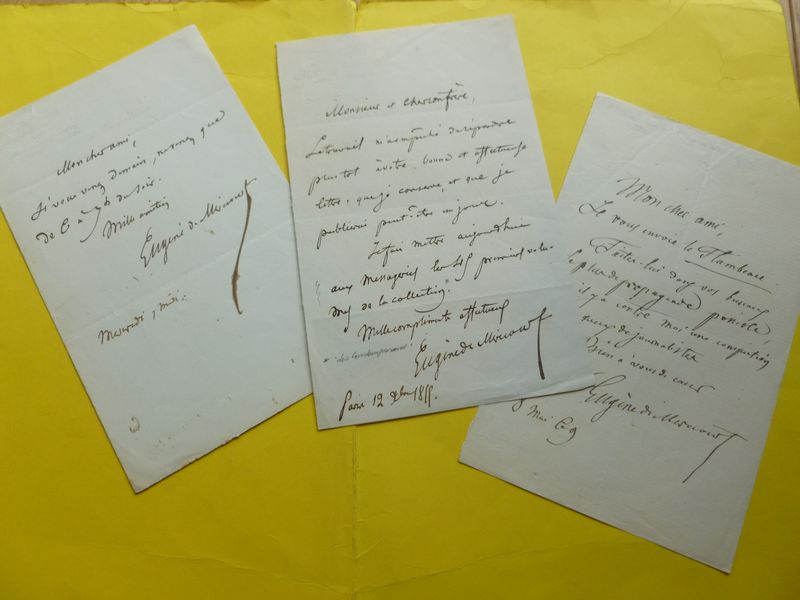 Mon cher ami,
Si vous venez demain, ne venez que
de 6 à 7h du soir.
Mille amitiés
Eugène de Mirecourt
Mercredi, midi.
Monsieur et cher confrère,
Le travail m'a empêché de répondre
plus tôt à votre bonne et affectueuse
lettre, que je conserve, et que je
publierai peut-être un jour.
Je fais mettre aujourd'hui
aux messageries les premiers volu-
mes de la collection.
Mille compliments affectueux
des Contemporains
Eugène de Mirecourt
Paris 12 xbre 1855.
Mon cher ami,
Je vous envoie le Flambeau.
Faites-lui dans vos bureaux
le plus de propagande possible,
il y a contre moi une conspiration
de journalistes
Bien à vous de cœur
Eugène de Mirecourt
Mai